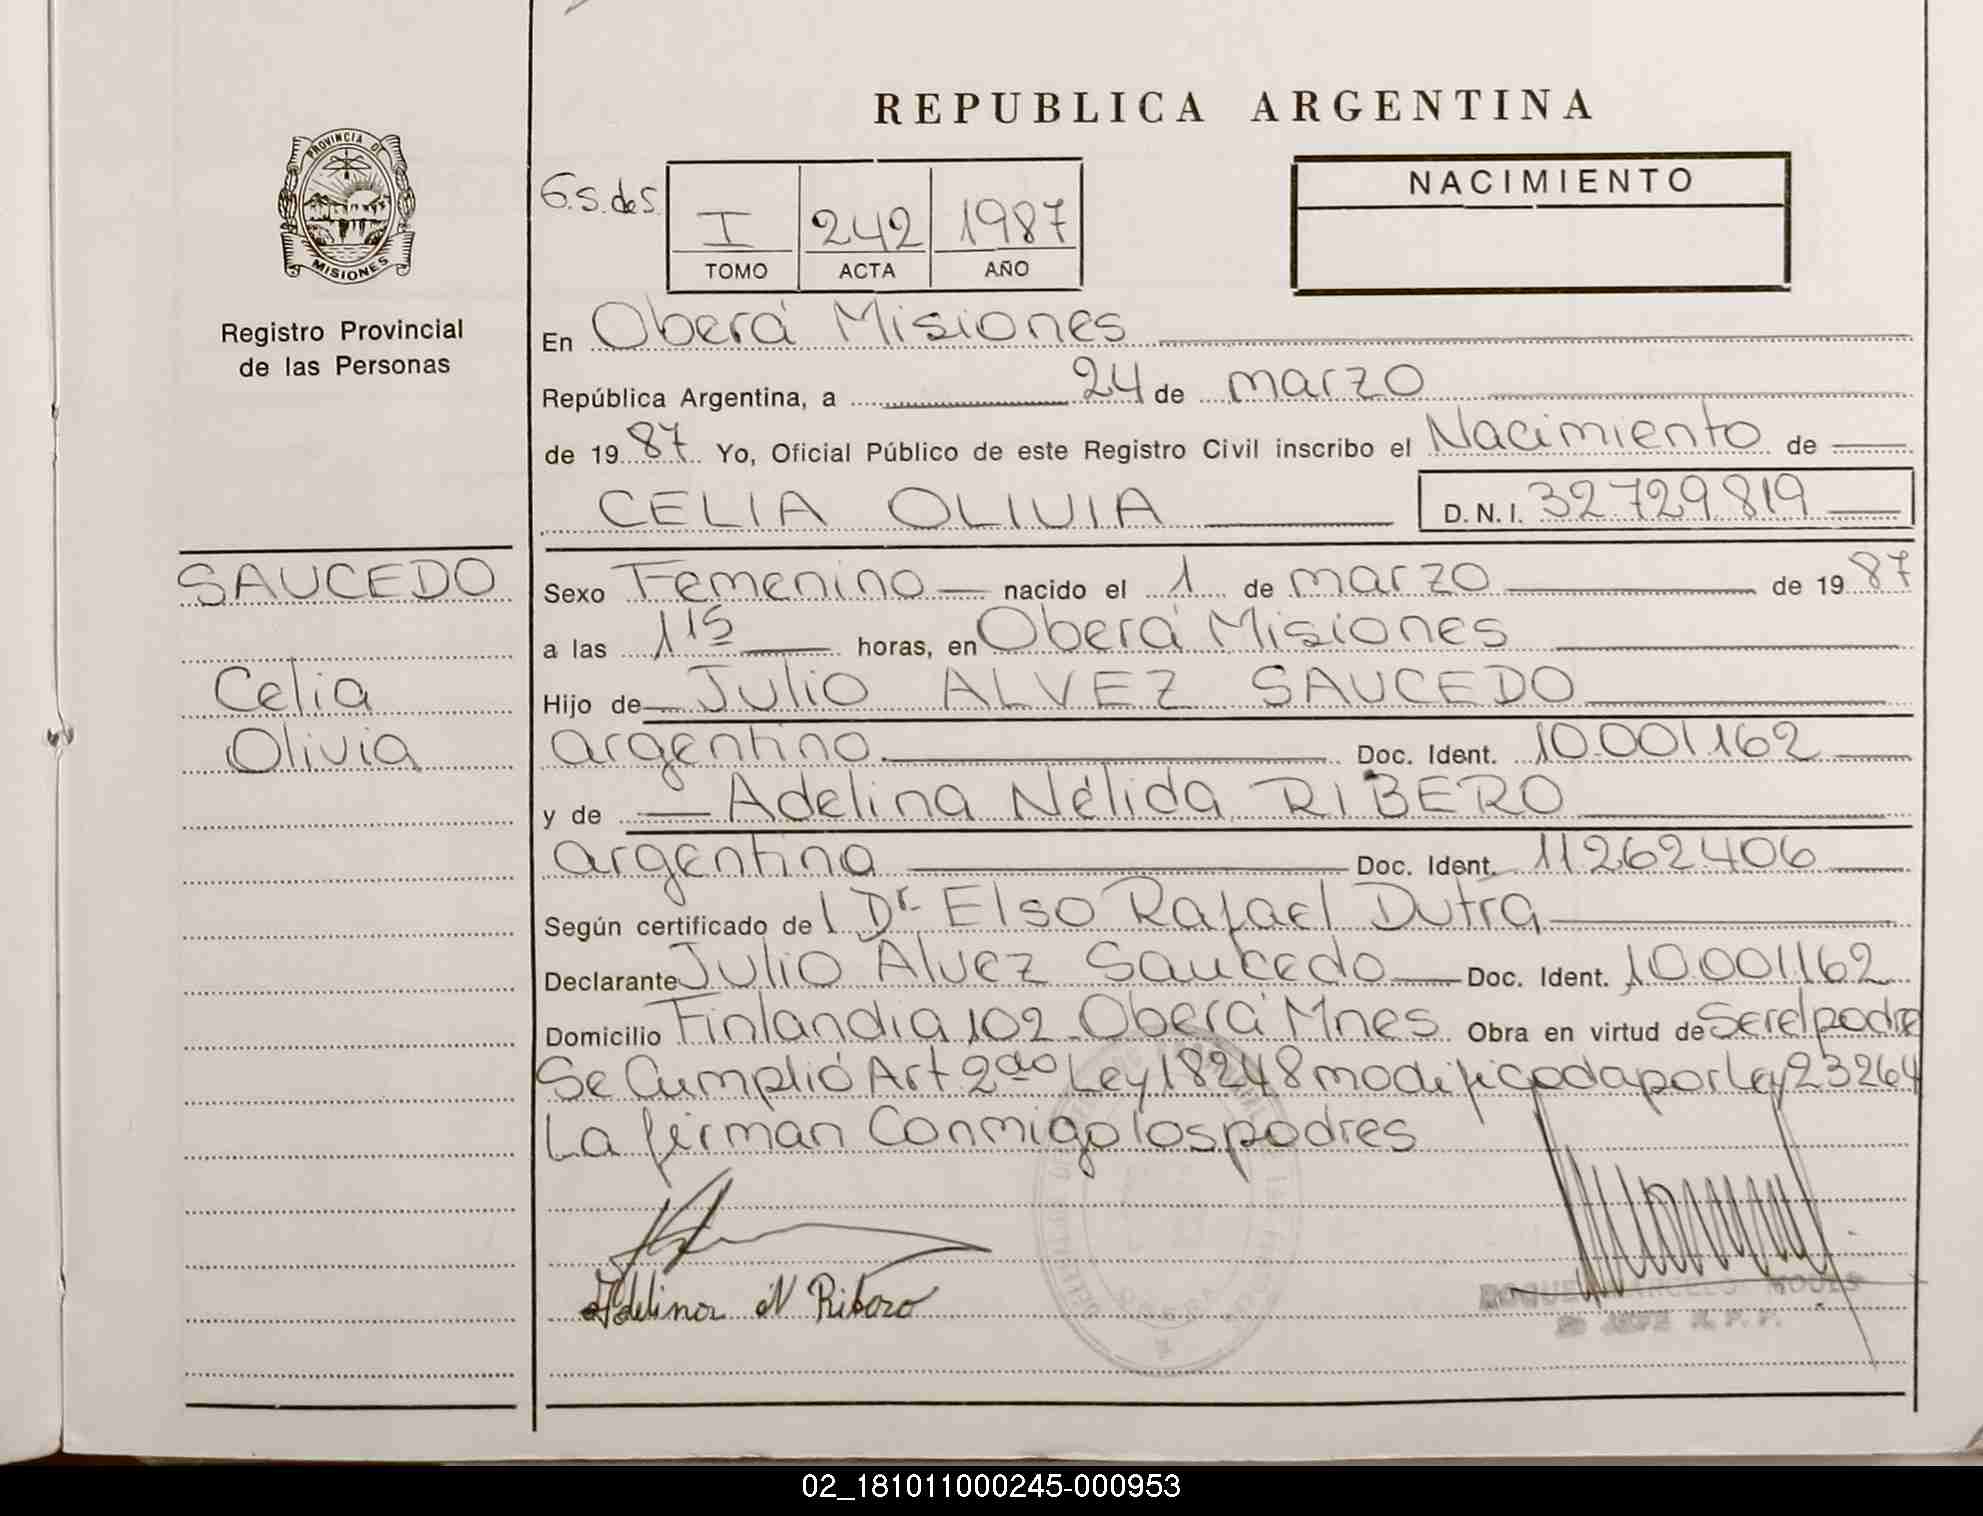 REPUBLICA ARGENTINA
PROVINCIA DE
MISIONES
Registro Provincial
de las Personas
G.S.deS.
I 242 1987
TOMO ACTA AÑO
NACIMIENTO
En Oberá Misiones
República Argentina, a 24 de marzo
de 1987 Yo, Oficial Público de este Registro Civil inscribo el Nacimiento de
CELIA OLIVIA D.N.I. 32.729.819
SAUCEDO
Celia
Olivia
Sexo Femenino nacido el 1 de marzo de 1987
a las 1 15 horas, en Oberá Misiones
Hijo de Julio ALVEZ SAUCEDO
argentino Doc. Ident. 10.001.162
y de Adelina Nélida RIBERO
argentina Doc. Ident. 11.262.406
Según certificado de l Dr. Elso Rafael Dutra
Declarante Julio Alvez Saucedo Doc. Ident. 10.001.162
Domicilio Finlandia 102 Oberá Mnes Obra en virtud de Ser el padre
Se Cumplió Art 2do Ley 18248 modificada por Ley 23264
La firman Conmigo los padres
Adelina N Ribero
02_181011000245-000953